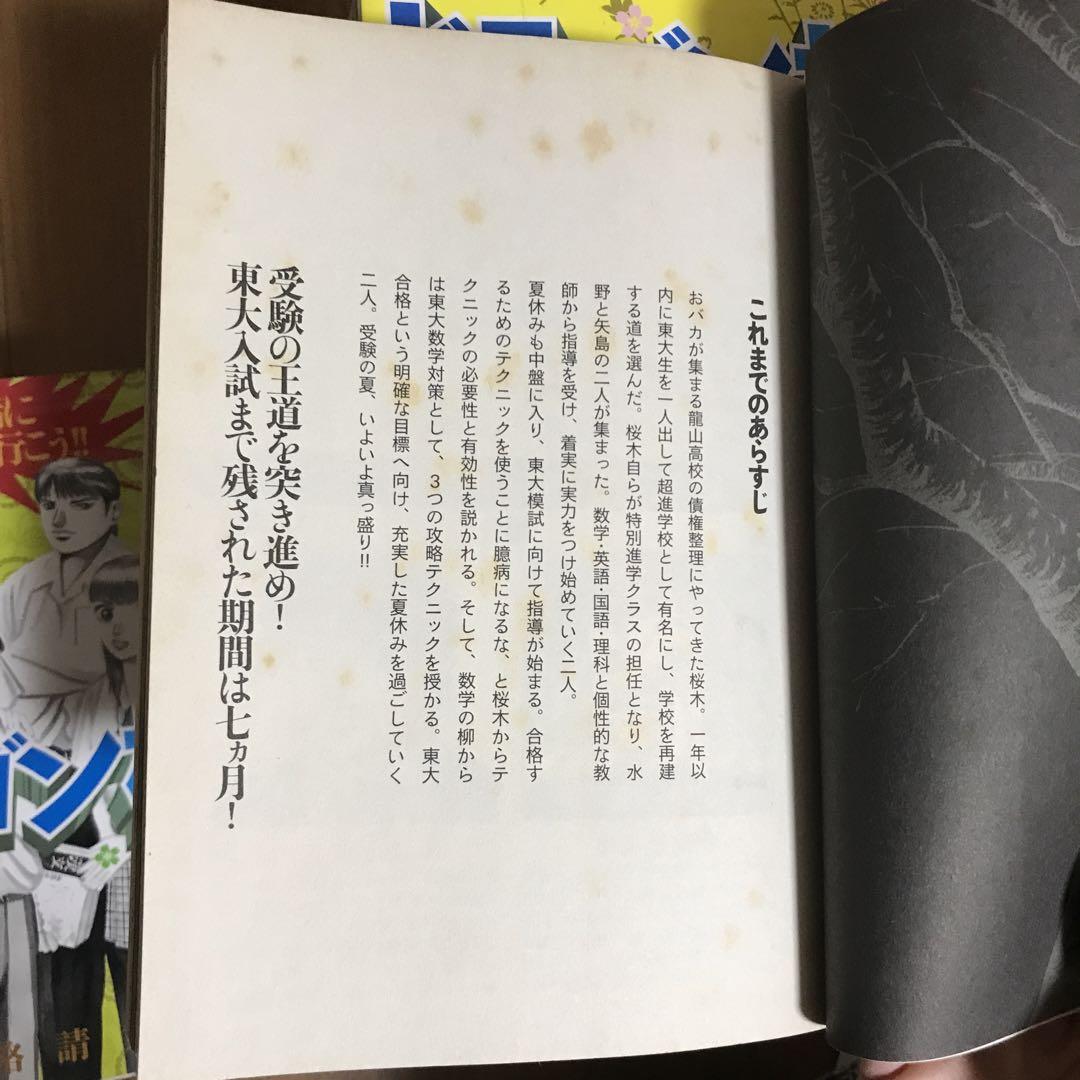 これまでのあらすじ
おバカが集まる龍山高校の債権整理にやってきた桜木。一年以
内に東大生を一人出して超進学校として有名にし、学校を再建
する道を選んだ。桜木自らが特別進学クラスの担任となり、水
野と矢島の二人が集まった。数学・英語・国語・理科と個性的な教
師から指導を受け、着実に実力をつけ始めていく二人。
夏休みも中盤に入り、東大模試に向けて指導が始まる。合格す
るためのテクニックを使うことに臆病になるな、と桜木からテ
クニックの必要性と有効性を説かれる。そして、数学の柳から
は東大数学対策として、3つの攻略テクニックを授かる。東大
合格という明確な目標へ向け、充実した夏休みを過ごしていく
二人。受験の夏、いよいよ真っ盛り!!
受験の王道を突き進め！
東大入試まで残された期間は七ヵ月！
に
行こう!!
ゴン
請